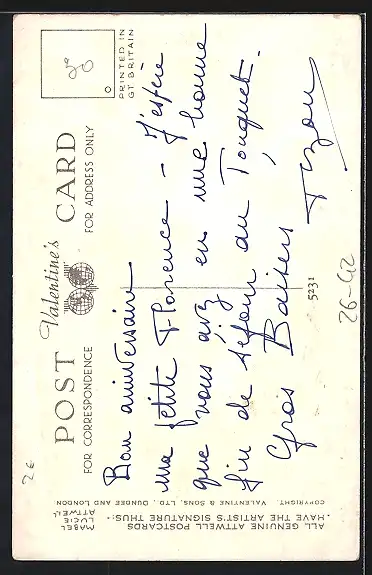 ALL GENUINE ATTWELL POSTCARDS
• HAVE THE ARTIST'S SIGNATURE THUS:-
MABEL
LUCIE
ATTWELL
COPYRIGHT. VALENTINE & SONS, LTD., DUNDEE AND LONDON
POST Valentine's CARD
FOR CORRESPONDENCE
FOR ADDRESS ONLY
PRINTED IN
GT BRITAIN
20
Bon anniversaire
ma petite Florence - J'espère
que vous avez eu une bonne
fin de séjour au Touquet.
Gros Baisers
5231
26-G2
26